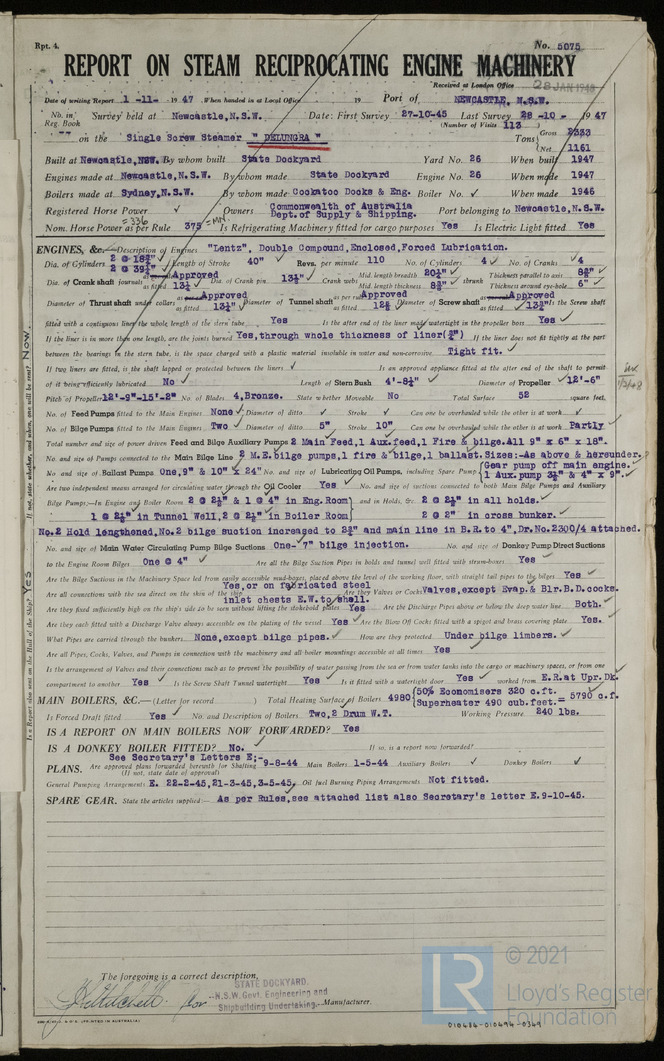 Rpt. 4.
No. 5075
REPORT ON STEAM RECIPROCATING ENGINE MACHINERY
Received at London Office 28 JAN 1948
Date of writing Report 1 -11- 1947 When handed in at Local Office 19 Port of NEWCASTLE, N.S.W.
No. in Reg. Book Survey held at Newcastle, N.S.W. Date: First Survey 27-10-45 Last Survey 28 -10 - 1947
(Number of Visits 113)
on the Single Screw Steamer " DELUNGRA " Tons Gross 2333 Net 1161
Built at Newcastle, NSW. By whom built State Dockyard Yard No. 26 When built 1947
Engines made at Newcastle, N.S.W. By whom made State Dockyard Engine No. 26 When made 1947
Boilers made at Sydney, N.S.W. By whom made Cockatoo Docks & Eng. Boiler No. ✓ When made 1946
Registered Horse Power ✓ Owners Commonwealth of Australia Dept. of Supply & Shipping. Port belonging to Newcastle, N.S.W.
Nom. Horse Power as per Rule 375 = MN = 336 Is Refrigerating Machinery fitted for cargo purposes Yes Is Electric Light fitted Yes
ENGINES, &c. Description of Engines "Lentz", Double Compound, Enclosed, Forced Lubrication.
Dia. of Cylinders 2 @ 18½" 2 @ 39¼" Length of Stroke 40" Revs. per minute 110 No. of Cylinders 4 No. of Cranks 4
Dia. of Crank shaft journals as per Rule Approved as fitted 13¼" Dia. of Crank pin 13¼" Crank webs Mid. length breadth 20¼" Mid. length thickness 8¾" shrunk Thickness parallel to axis 8¾" Thickness around eye-hole 6"
Diameter of Thrust shaft under collars as per Rule Approved as fitted 13¼" Diameter of Tunnel shaft as per rule Approved as fitted Diameter of Screw shaft as per Rule Approved as fitted 13¾" Is the Screw shaft
fitted with a continuous liner the whole length of the stern tube Yes Is the after end of the liner made watertight in the propeller boss Yes
If the liner is in more than one length, are the joints burned Yes, through whole thickness of liner(¾") If the liner does not fit tightly at the part
between the bearings in the stern tube, is the space charged with a plastic material insoluble in water and non-corrosive. Tight fit.
If two liners are fitted, is the shaft lapped or protected between the liners ✓ Is an approved appliance fitted at the after end of the shaft to permit
of it being efficiently lubricated No Length of Stern Bush 4'-8¼" Diameter of Propeller 12'-6"
Pitch of Propeller 12'-9"-15'-2" No. of Blades 4, Bronze. State whether Moveable No Total Surface 52 square feet.
No. of Feed Pumps fitted to the Main Engines None Diameter of ditto ✓ Stroke ✓ Can one be overhauled while the other is at work ✓
No. of Bilge Pumps fitted to the Main Engines Two Diameter of ditto 5" Stroke 10" Can one be overhauled while the other is at work Partly
Total number and size of power driven Feed and Bilge Auxiliary Pumps 2 Main Feed, 1 Aux. feed, 1 Fire & bilge. All 9" x 6" x 18".
No. and size of Pumps connected to the Main Bilge Line 2 M.E. bilge pumps, 1 fire & bilge, 1 ballast. Sizes:-As above & hereunder.
No. and size of Ballast Pumps One, 9" & 10" x 24" No. and size of Lubricating Oil Pumps, including Spare Pump Gear pump off main engine. 1 Aux. pump 3½" & 4" x 9"
Are two independent means arranged for circulating water through the Oil Cooler Yes No. and size of suctions connected to both Main Bilge Pumps and Auxiliary
Bilge Pumps:—In Engine and Boiler Room 2 @ 2½" & 1 @ 4" in Eng. Room and in Holds, &c. 2 @ 2½" in all holds.
1 @ 2½" in Tunnel Well, 2 @ 2½" in Boiler Room 2 @ 2" in cross bunker.
No.2 Hold lengthened, No.2 bilge suction increased to 2¾" and main line in B.R. to 4", Dr. No. 2300/4 attached.
No. and size of Main Water Circulating Pump Bilge Suctions One- 7" bilge injection. No. and size of Donkey Pump Direct Suctions
to the Engine Room Bilges One @ 4" Are all the Bilge Suction Pipes in holds and tunnel well fitted with strum-boxes Yes
Are the Bilge Suctions in the Machinery Space led from easily accessible mud-boxes, placed above the level of the working floor, with straight tail pipes to the bilges Yes
Are all connections with the sea direct on the skin of the ship Yes, or on fabricated steel inlet chests E.W. to shell. Are they Valves or Cocks Valves, except Evap. & Blr. B.D. cocks.
Are they fixed sufficiently high on the ship's side to be seen without lifting the stokehold plates Yes Are the Discharge Pipes above or below the deep water line Both.
Are they each fitted with a Discharge Valve always accessible on the plating of the vessel Yes Are the Blow Off Cocks fitted with a spigot and brass covering plate Yes.
What Pipes are carried through the bunkers None, except bilge pipes. How are they protected Under bilge limbers.
Are all Pipes, Cocks, Valves, and Pumps in connection with the machinery and all boiler mountings accessible at all times Yes
Is the arrangement of Valves and their connections such as to prevent the possibility of water passing from the sea or from water tanks into the cargo or machinery spaces, or from one
compartment to another Yes Is the Screw Shaft Tunnel watertight Yes Is it fitted with a watertight door Yes worked from E.R. at Upr. Dk.
MAIN BOILERS, &C.—(Letter for record ) Total Heating Surface of Boilers 4980 50% Economisers 320 c.ft. Superheater 490 cub. feet. = 5790 c.f.
Is Forced Draft fitted Yes No. and Description of Boilers Two, 2 Drum W.T. Working Pressure 240 lbs.
IS A REPORT ON MAIN BOILERS NOW FORWARDED? Yes
IS A DONKEY BOILER FITTED? No. If so, is a report now forwarded?
See Secretary's Letters E;-
PLANS. Are approved plans forwarded herewith for Shafting 9-8-44 Main Boilers 1-5-44 Auxiliary Boilers ✓ Donkey Boilers ✓
(If not, state date of approval)
General Pumping Arrangements E. 22-2-45, 21-3-45, 3-5-45. Oil fuel Burning Piping Arrangements Not fitted.
SPARE GEAR. State the articles supplied:— As per Rules, see attached list also Secretary's letter E.9-10-45.
The foregoing is a correct description,
for
STATE DOCKYARD,
N.S.W. Govt. Engineering and
Shipbuilding Undertaking. Manufacturer.
Is a Report also sent on the Hull of the Ship? YES If not, state whether, and when, one will be sent? NOW.
© 2021
LR
Lloyd's Register
Foundation
010486-010494-0349